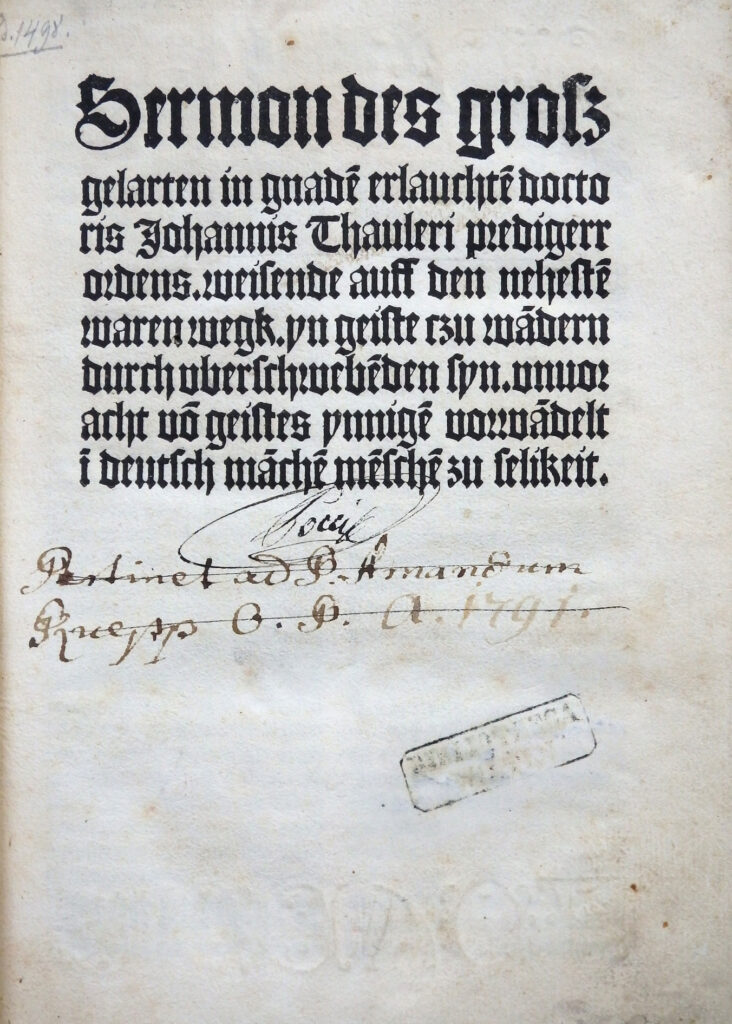 1498.
Sermon des groſz
gelarten in gnadē erlauchtē docto
ris Johannis Thauleri predigerr
ordens. weiſende auff den neheſtē
waren wegk. yn geiſte czu wādern
durch vberſchwebēden ſyn. vnuor
acht vō geiſtes ynnigē vorwādelt
ī deutſch māchē mēſchē zu ſelikeit.
Pertinet ad P. Amandum
Kuepp O. P. A. 1791.
BIBLIOTHECA